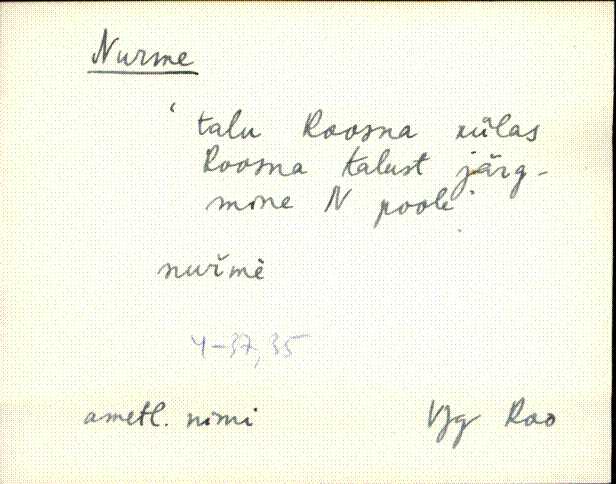 Nurme
' talu Roosna külas
Roosna talust järg-
mine N poole '
nuŕmè
4-37, 35
ametl. nimi Vjg Roo